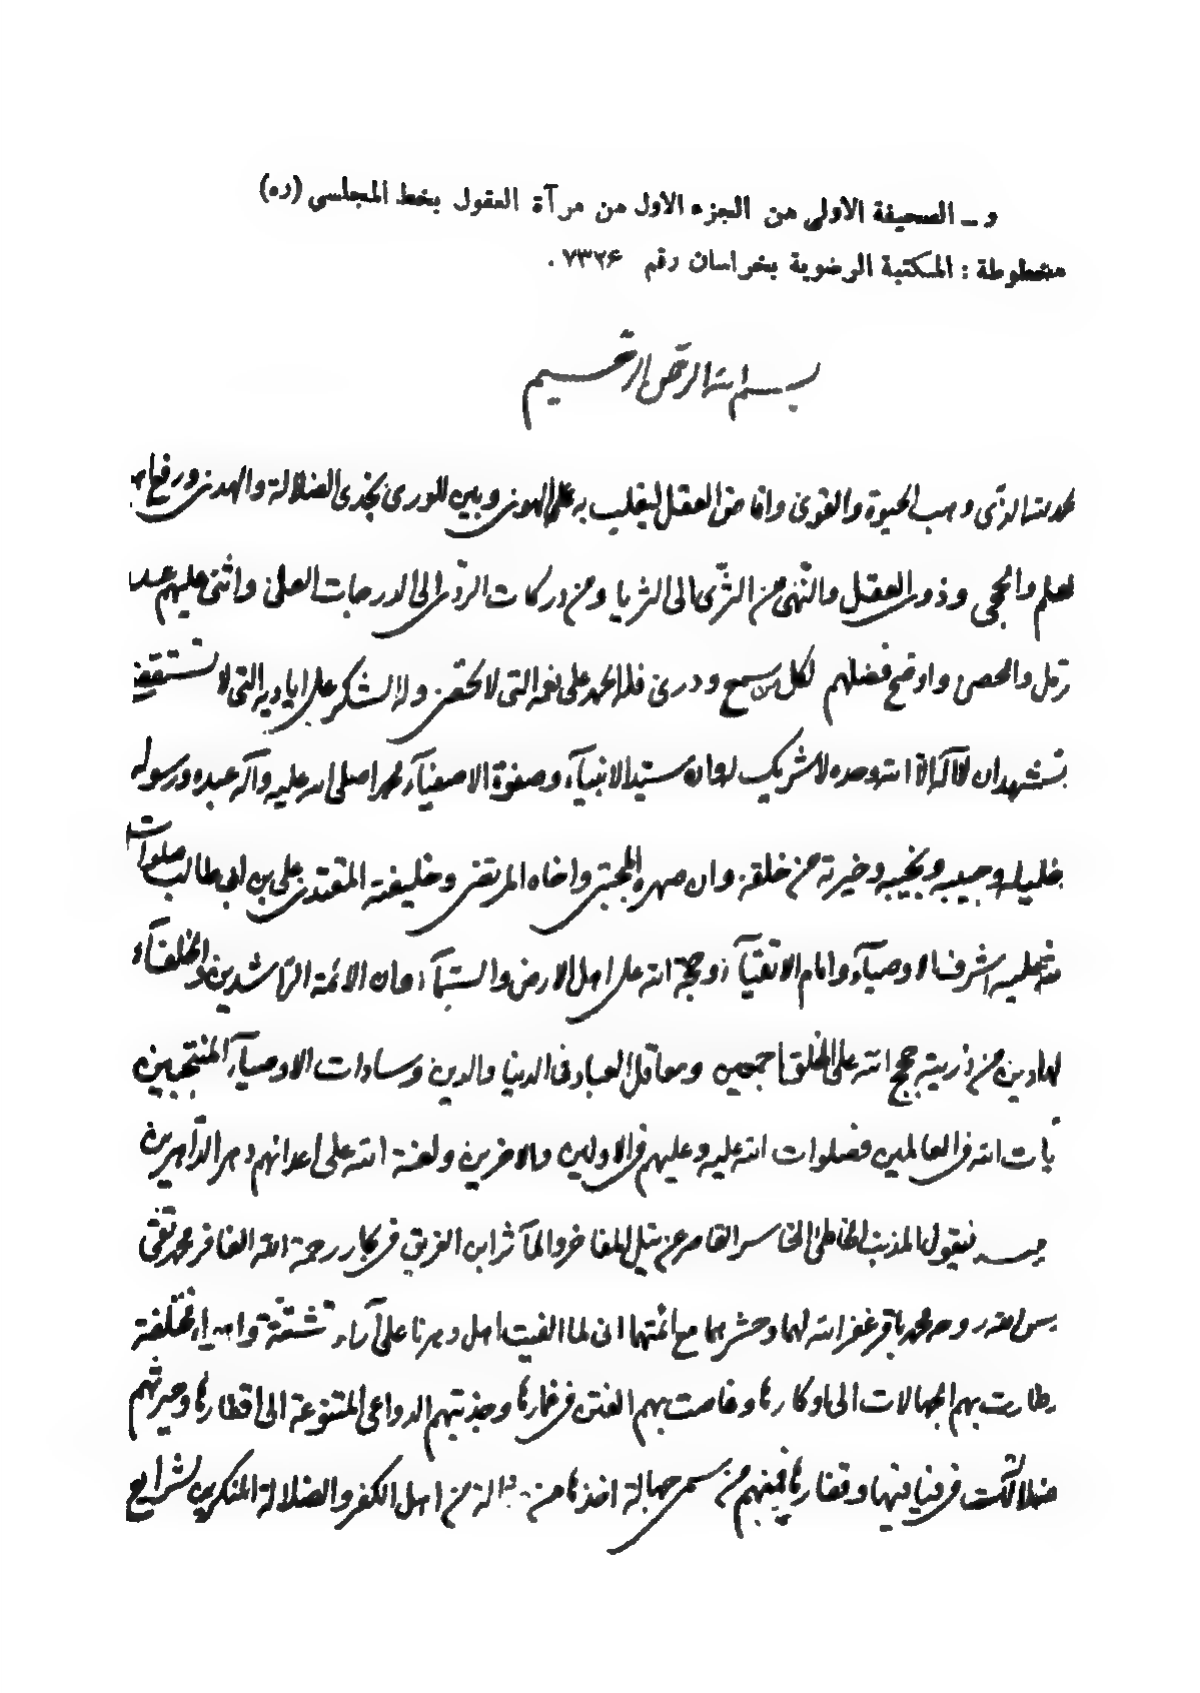 و ــ الصحيفة الاولى من الجزء الاول من مرآة العقول بخط المجلسى (ره)
مخطوطة : المكتبة الرضوية بخراسان رقم ٧٣٢۶ .
بسم الله الرحمن الرحيم
الذى وهب الحيوة والقوى وافاض العقل ليغلب به على الهوى وبين للورى نجدى الضلالة والهدى ورفع
لعلم والحجى وذوى العقل والنهى من الثرى الى الثريا ومن دركات الردى الى الدرجات العلى واثنى عليهم
رمل والحصى واوضح فضلهم لكل من سمع ودرى فله الحمد على نعمه التى لا تحصى وله الشكر على اياديه التى لا
نشهد ان لا اله الا الله وحده لا شريك له وان سيد الانبيآء وصفوة الاصفيآء محمدا صلى الله عليه وآله عبده ورسوله
خليله وحبيبه ونجيبه وخيرته من خلقه وان صهره المجتبى واخاه المرتضى وخليفته المقتدى على بن ابى طالب صلوات
الله عليه اشرف الاوصيآء وامام الاتقيآء وحجة الله على اهل الارض والسمآء وان الائمة الراشدين والخلفآء
لهادين من ذريته حجج الله على الخلق اجمعين ومعاقل العباد فى الدنيا والدين وسادات الاوصيآء المنتجبين
يات الله فى العالمين فصلوات الله عليه وعليهم فى الاولين والاخرين ولعنة الله على اعدائهم دهر الداهرين
فيقول المذنب الخاطئ الخاسر القاصر عن نيل المفاخر والمآثر ابن الغريق فى بحار رحمة الله الغافر محمد تقى
س الله روحه محمد باقر غفر الله لهما وحشرهما مع ائمتهما انى لما الفيت اهل دهرنا على آراء متشتتة واهواء مختلفة
طارت بهم الجهالات الى اوكارها وغاصت بهم الفتن فى غمارها وجذبتهم الدواعى المتنوعة الى اقطارها وحيرتهم
ضلالات فى فيافيها وقفارها فمنهم من سمى جهالة اخذها من حثالة من اهل الكفر والضلالة المنكرين لشرايع